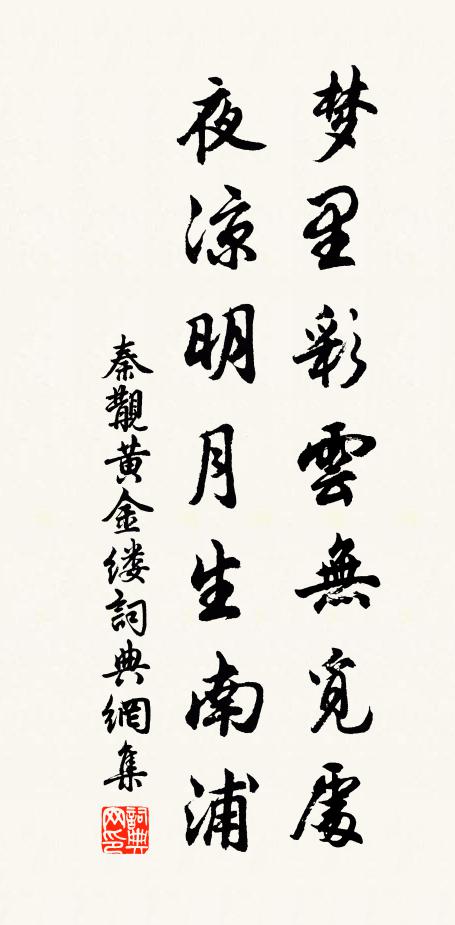 梦里彩雲無覓處
夜涼明月生南浦
秦觀黄金缕詞典網集
詞典网印